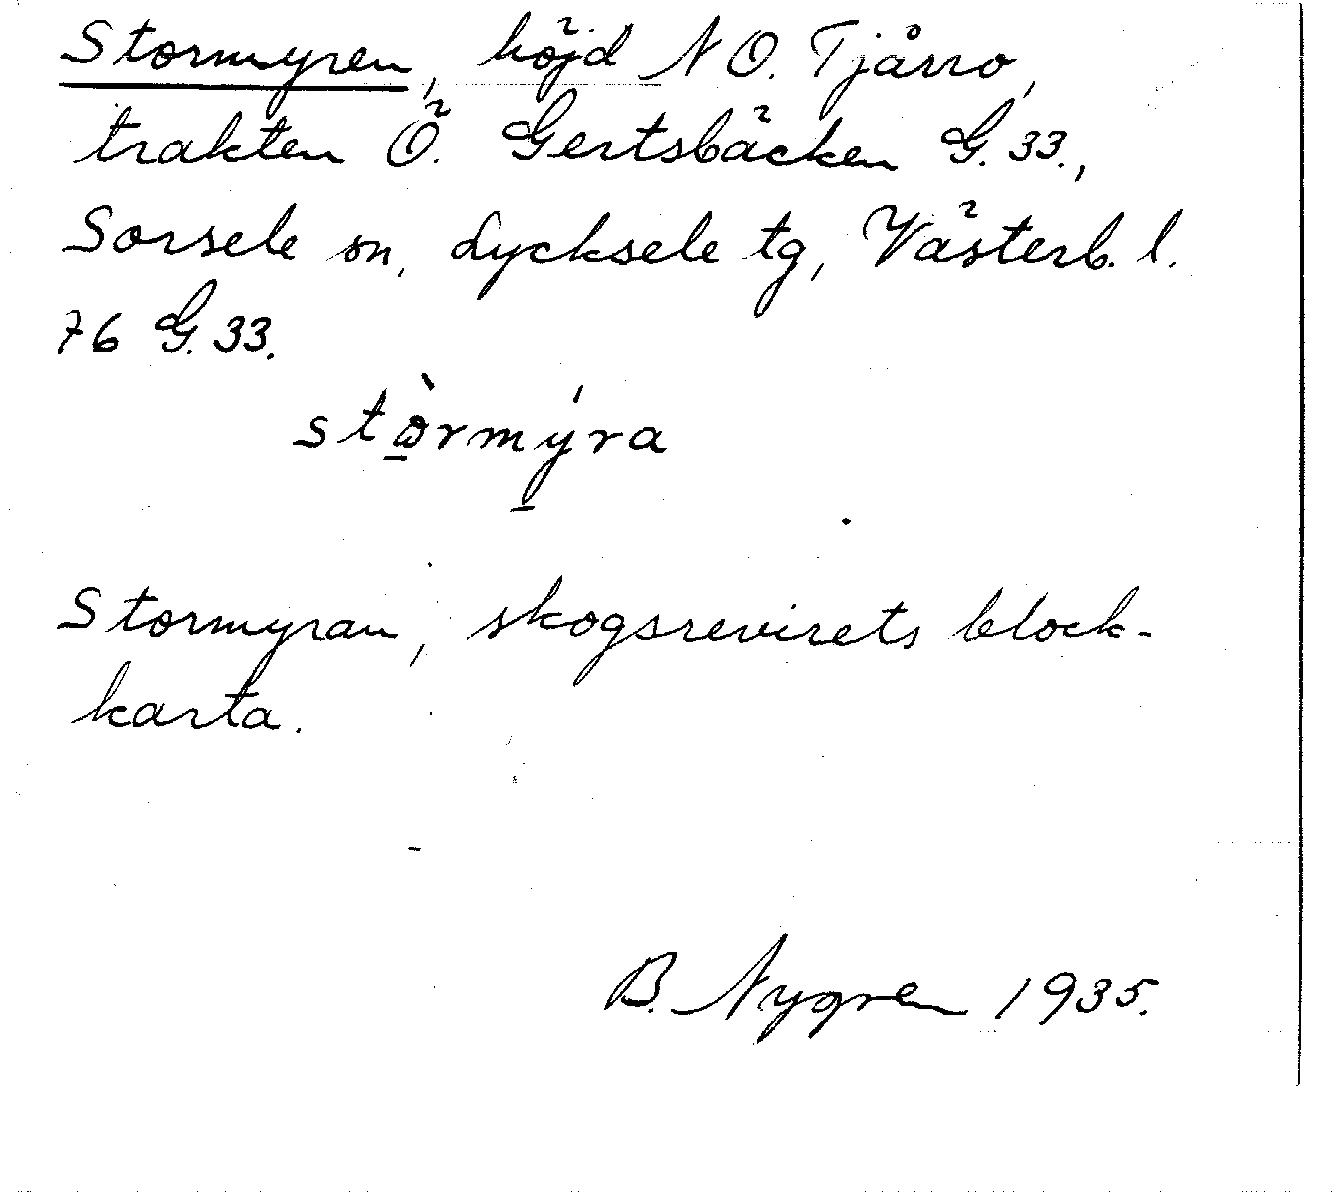 Stormyren, höjd NO. Tjårro,
trakten Ö. Gertsbäcken G. 33.,
Sorsele sn, Lycksele tg, Västerb. l.
76 G. 33.
stò̱rmý̱ra
Stormyran, skogsrevirets block-
karta.
B. Nygren 1935.